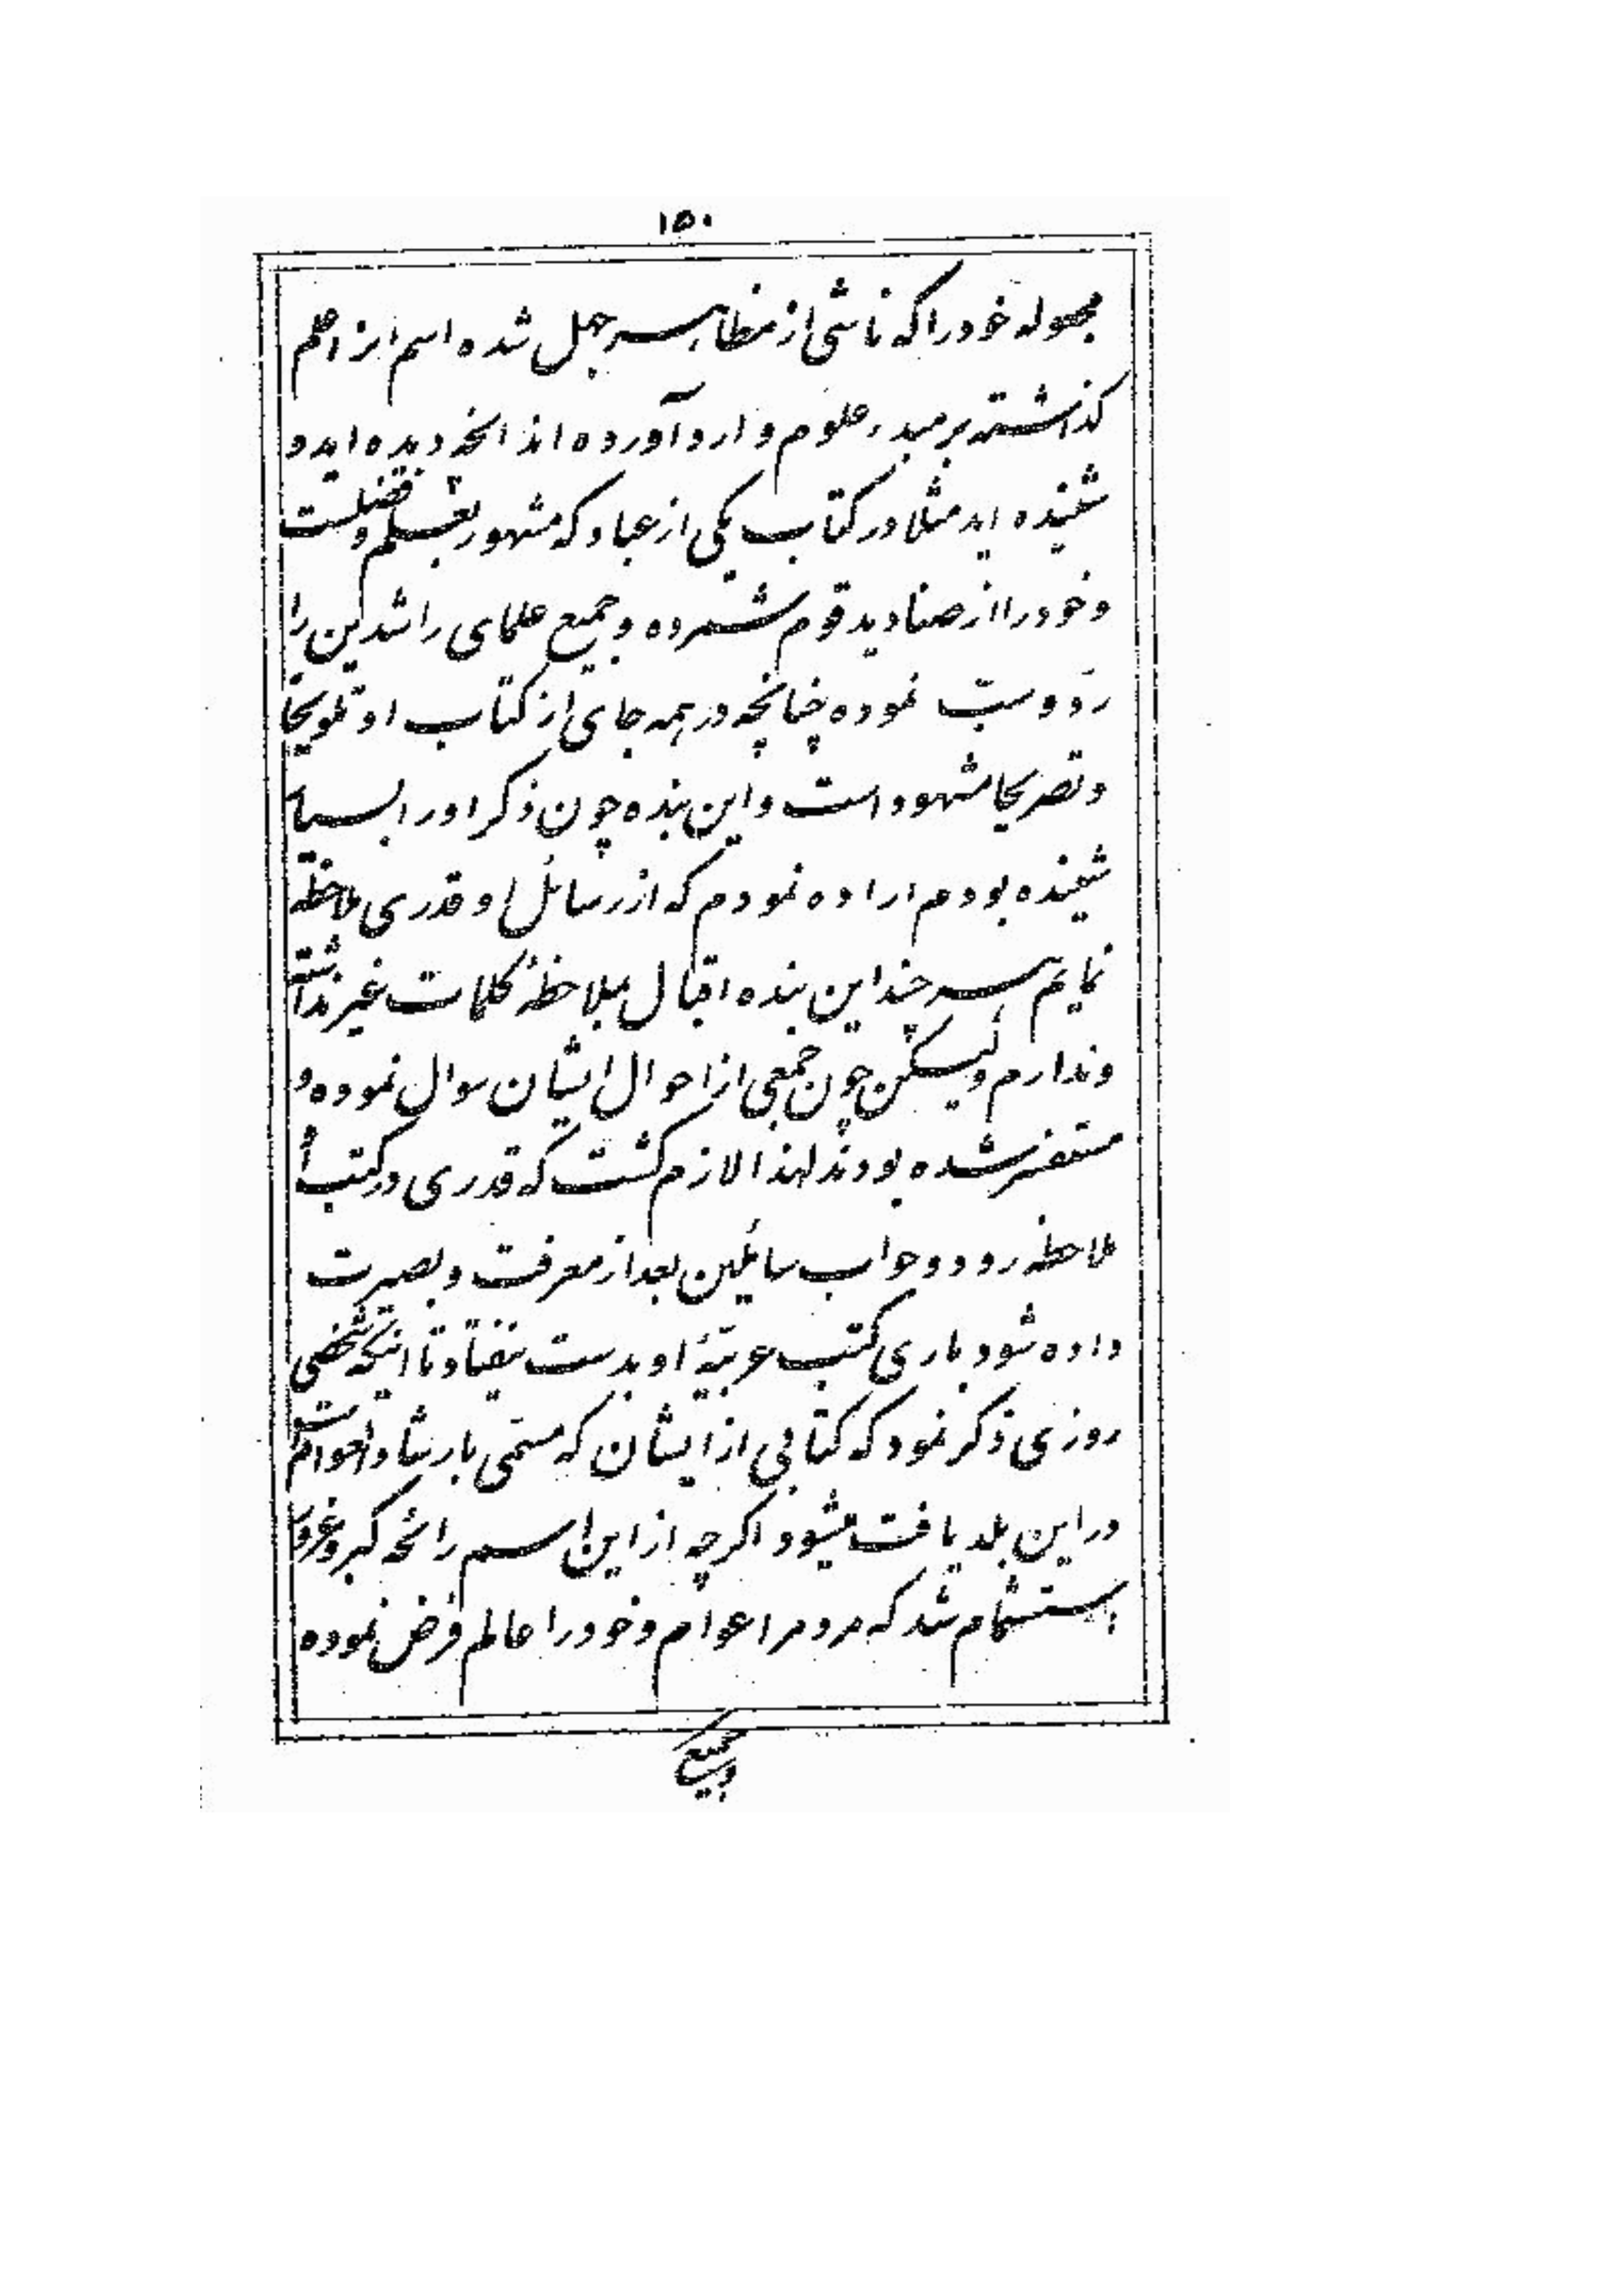 ١٥٠
مجعوله خود را که ناشی از مظاهر جهل شده اسم انرا علم
گذاشته بر مبدء علوم وارد آورده اند انچه دیده اید و
شنیده اید مثلا در کتاب یکی از عباد که مشهور بعلم و فضلست
و خود را از صنادید قوم شمرده و جمیع علمای راشدین را
ردّ و سبّ نموده چنانچه در همه جای از کتاب او تلویحا
و تصریحا مشهود است و این بنده چون ذکر او را بسیار
شنیده بودم اراده نمودم که از رسائل او قدری ملاحظه
نمایم هر چند این بنده اقبال بملاحظهٔ کلمات غیر نداشته
و ندارم و لیکن چون جمعی از احوال ایشان سوال نموده و
مستفسر شده بودند لهذا لازم گشت که قدری در کتب او
ملاحظه رود و جواب سائلین بعد از معرفت و بصیرت
داده شود باری کتب عربیّهٔ او بدست نیفتاد تا اینکه شخصی
روزی ذکر نمود که کتابی از ایشان که مسمّی بارشاد العوامست
در این بلد یافت میشود اگر چه از این اسم رائحهٔ کبر و غرور
استشمام شد که مردم را عوام و خود را عالم فرض نموده
و جمیع